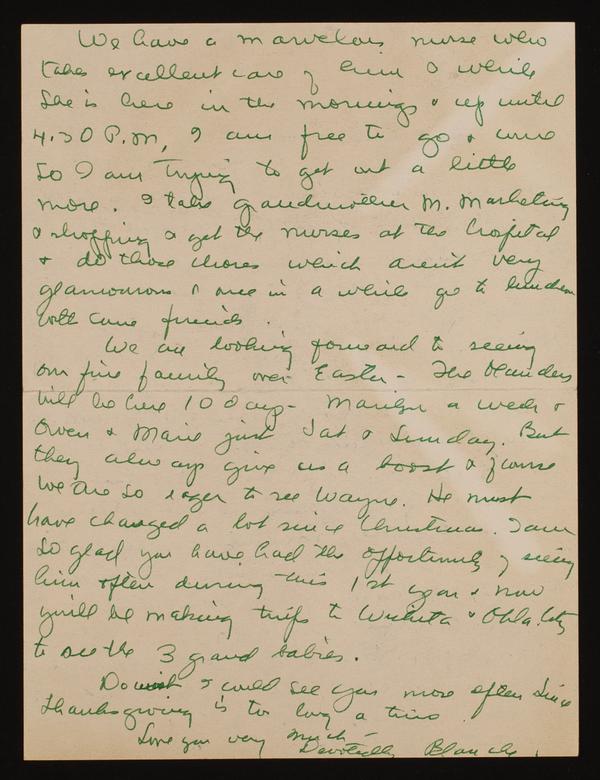 We have a marvelous nurse who
takes excellent care of him & while
she is here in the mornings & up until
4:30 P.M, I am free to go & come
so I am trying to get out a little
more. I take grandmother M. marketing
& shopping & get the nurses at the hospital
& do those chores which aren't very
glamourous & once in a while go to luncheon
with some friends.
We are looking forward to seeing
our fine family over Easter - The
will be here 10 days - Marilyn a week &
Owen & Marie just Sat & Sunday. But
they always give us a boost & of course
we are so eager to see Wayne. He must
have changed a lot since Christmas. I am
so glad you have had the opportunity of seeing
him often during this 1st year & now
you'll be making trips to Wichita & Okla. City
to see the 3 grand babies.
Do wish I could see you more often since
Thanksgiving is too long a time.
Love you very much -
Devotedly Blanche.